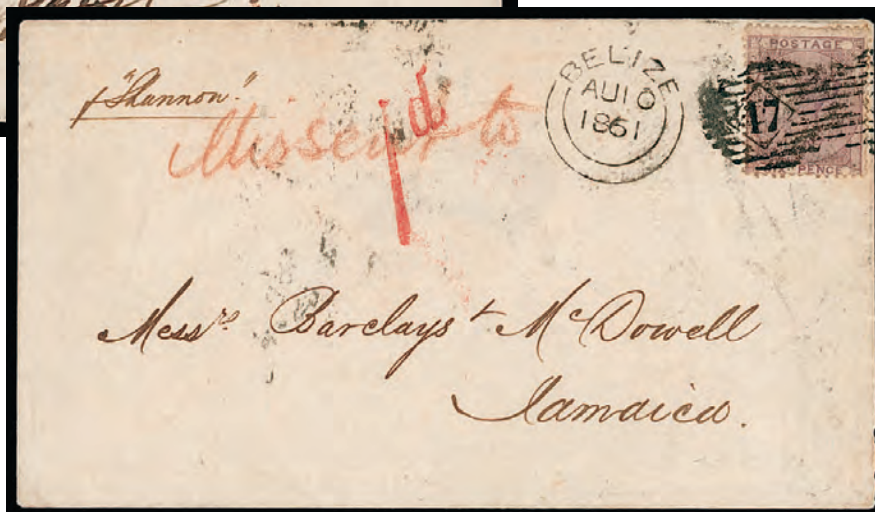 p "Shannon"
Missent to
1d
BELIZE
AU 10
1861
POSTAGE
PENCE
Messrs Barclays & McDowell
Jamaica.